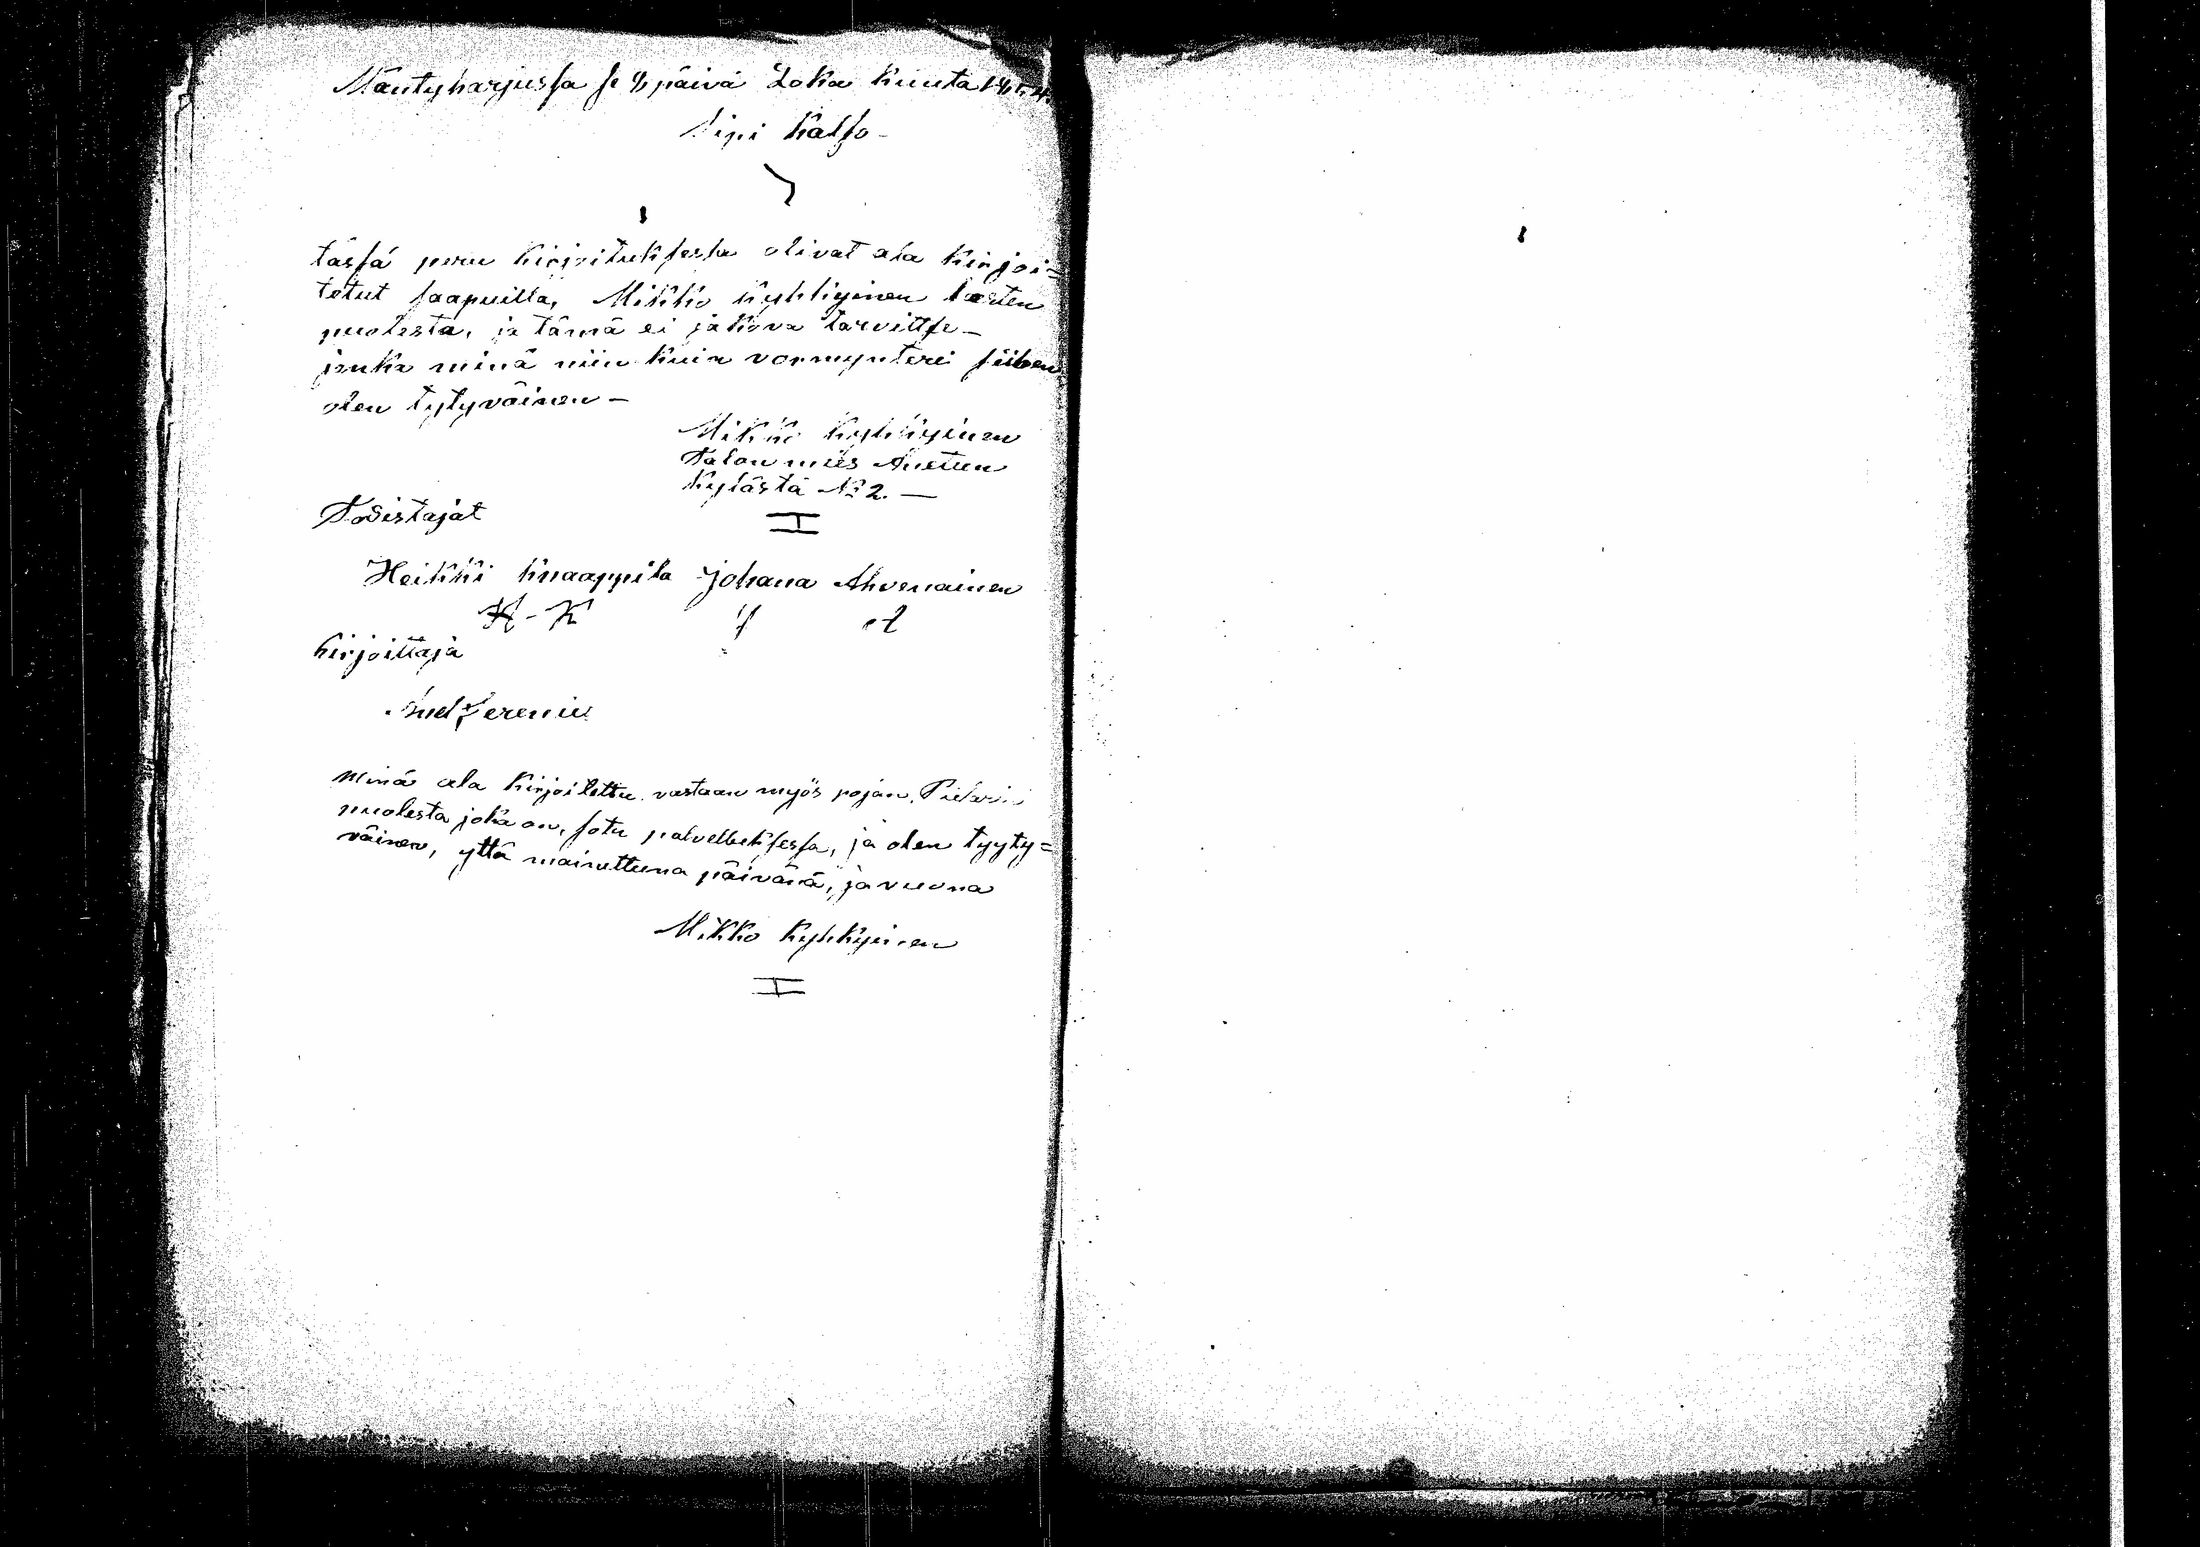 Mäntyharjussa se 9 päivä Loka kuuta
Sipi Katso
tässä peru kirjoituksessa olivat ala kirjoi=
tetut saapuilla, Mikko Kyhkyinen lasten
puolesta, ja tämä ei jakova tarvittse –
jonka minä niin kuin vormynteri siihen
olen tytyväinen –
Mikko Kyhkyinen
Talon mies
kylästä No 2. –
Todistajat
Heikki Knaappila Johana Ahvenainen
H – K J A
kirjoittaja
minä ala kirjoitettu vastaan myös pojan Pietarin
puolesta joka on, sota palvelluksessa, ja olen tyyty=
väinen, yllä mainuttuna päivänä, ja vuonna
Mikko Kyhkyinen